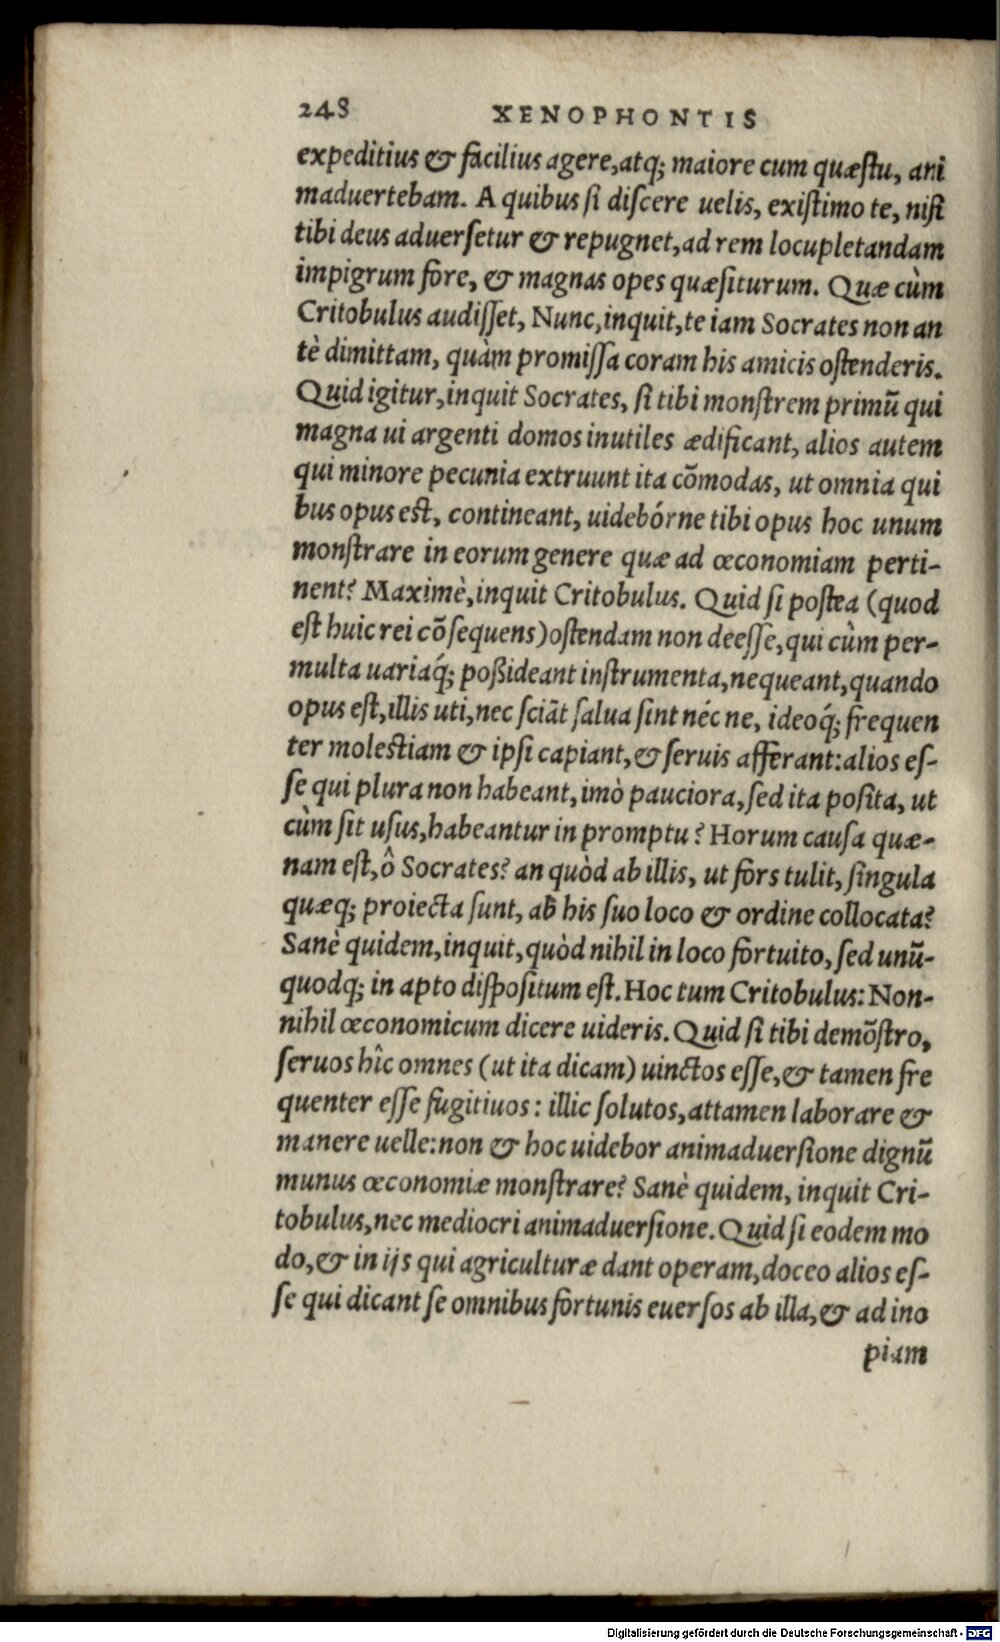 248 XENOPHONTIS
expeditius & facilius agere, atq; maiore cum quæstu, ani
maduertebam. A quibus si discere uelis, existimo te, nisi
tibi deus aduersetur & repugnet, ad rem locupletandam
impigrum fore, & magnas opes quæsiturum. Quæ cùm
Critobulus audisset, Nunc, inquit, te iam Socrates non an
tè dimittam, quàm promissa coram his amicis ostenderis.
Quid igitur, inquit Socrates, si tibi monstrem primū qui
magna ui argenti domos inutiles ædificant, alios autem
qui minore pecunia extruunt ita cōmodas, ut omnia qui
bus opus est, contineant, uidebórne tibi opus hoc unum
monstrare in eorum genere quæ ad œconomiam perti-
nent? Maximè, inquit Critobulus. Quid si postea (quod
est huic rei cōsequens) ostendam non deesse, qui cùm per-
multa uariaq́; poßideant instrumenta, nequeant, quando
opus est, illis uti, nec sciāt salua sint néc ne, ideoq́; frequen
ter molestiam & ipsi capiant, & seruis afferant: alios es-
se qui plura non habeant, imò pauciora, sed ita posita, ut
cùm sit usus, habeantur in promptu? Horum causa quæ-
nam est, ô Socrates? an quòd ab illis, ut fors tulit, singula
quæq; proiecta sunt, ab his suo loco & ordine collocata?
Sanè quidem, inquit, quòd nihil in loco fortuito, sed unū-
quodq; in apto dispositum est. Hoc tum Critobulus: Non-
nihil œconomicum dicere uideris. Quid si tibi demōstro,
seruos hîc omnes (ut ita dicam) uinctos esse, & tamen fre
quenter esse fugitiuos: illic solutos, attamen laborare &
manere uelle: non & hoc uidebor animaduersione dignū
munus œconomiæ monstrare? Sanè quidem, inquit Cri-
tobulus, nec mediocri animaduersione. Quid si eodem mo
do, & in ijs qui agriculturæ dant operam, doceo alios es-
se qui dicant se omnibus fortunis euersos ab illa, & ad ino
piam
Digitalisierung gefördert durch die Deutsche Forschungsgemeinschaft - DFG